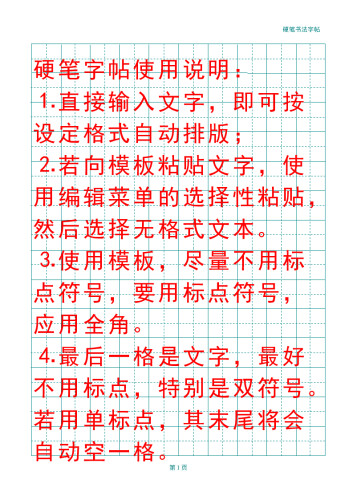 硬笔书法字帖
硬笔字帖使用说明：
1.直接输入文字，即可按
设定格式自动排版；
2.若向模板粘贴文字，使
用编辑菜单的选择性粘贴，
然后选择无格式文本。
3.使用模板，尽量不用标
点符号，要用标点符号，
应用全角。
4.最后一格是文字，最好
不用标点，特别是双符号。
若用单标点，其末尾将会
自动空一格。
第1页